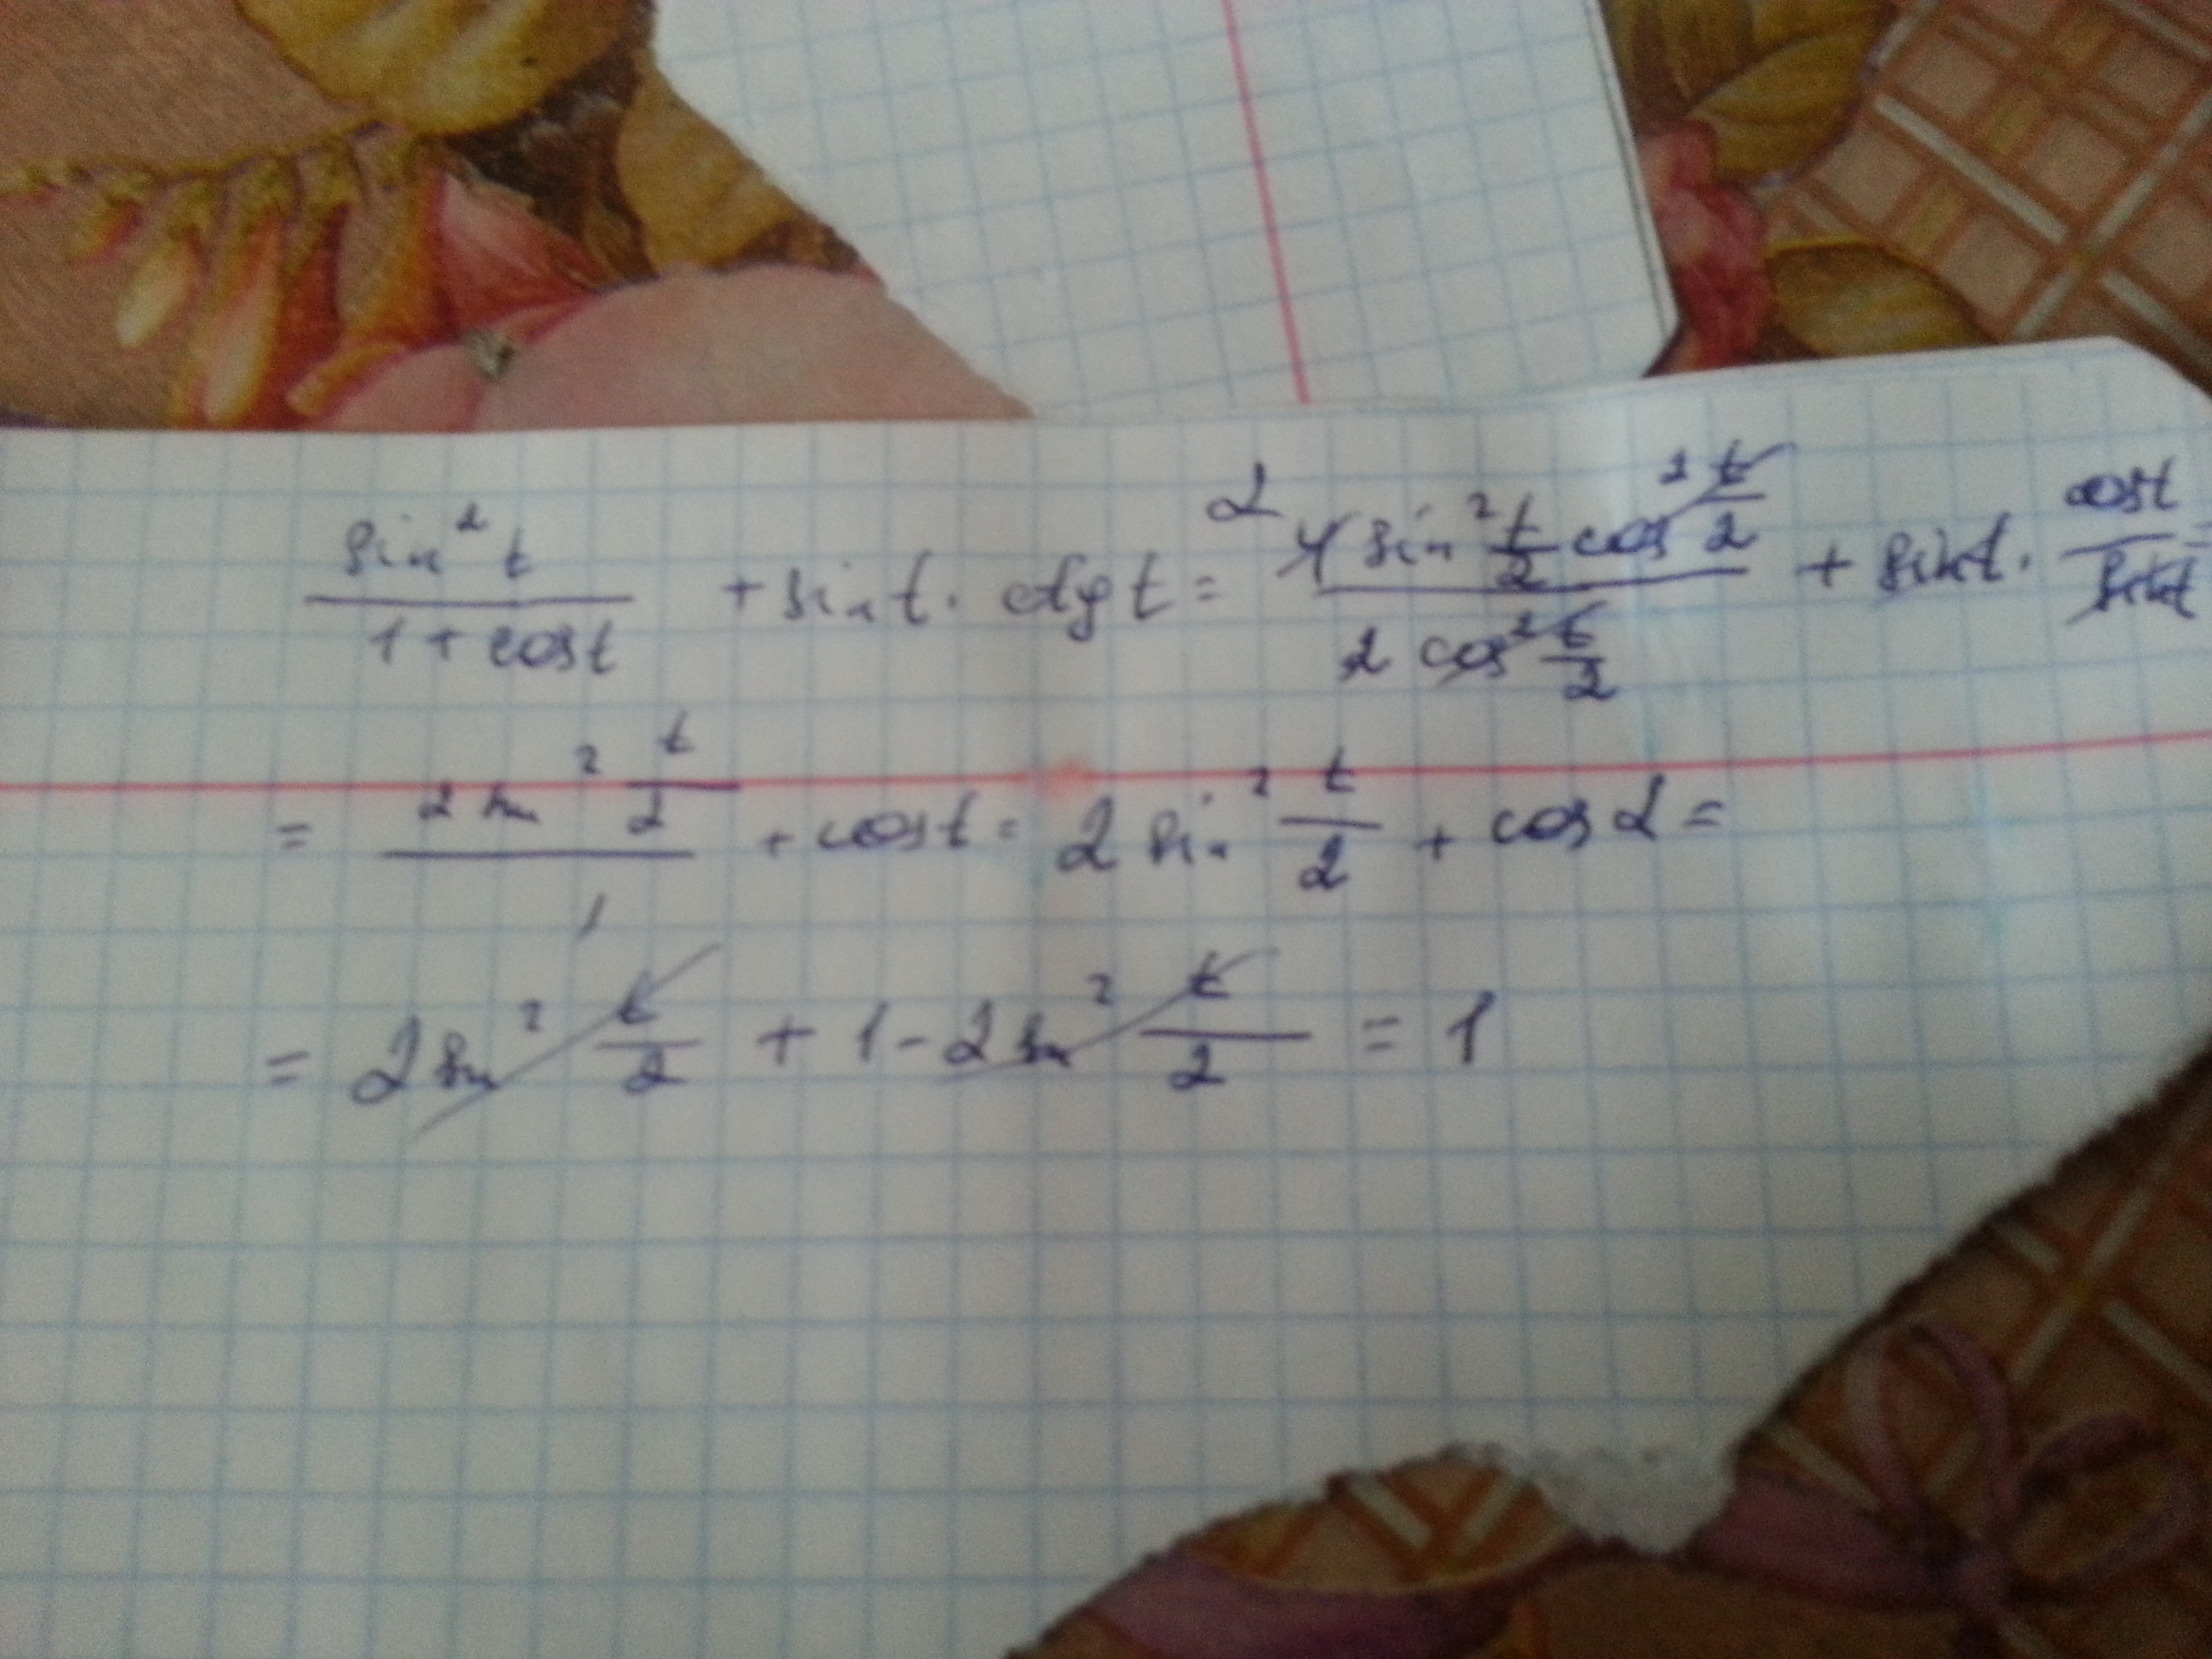 sin²t/(1 + cost) + sin t · ctg t = 2 4 sin² t/2 cos² t/2 / (2 cos² t/2) + sint · cost/sint =
= 2 sin² t/2 / 1 + cost = 2 sin² t/2 + cos α =
= 2 sin² t/2 + 1 - 2 sin² t/2 = 1